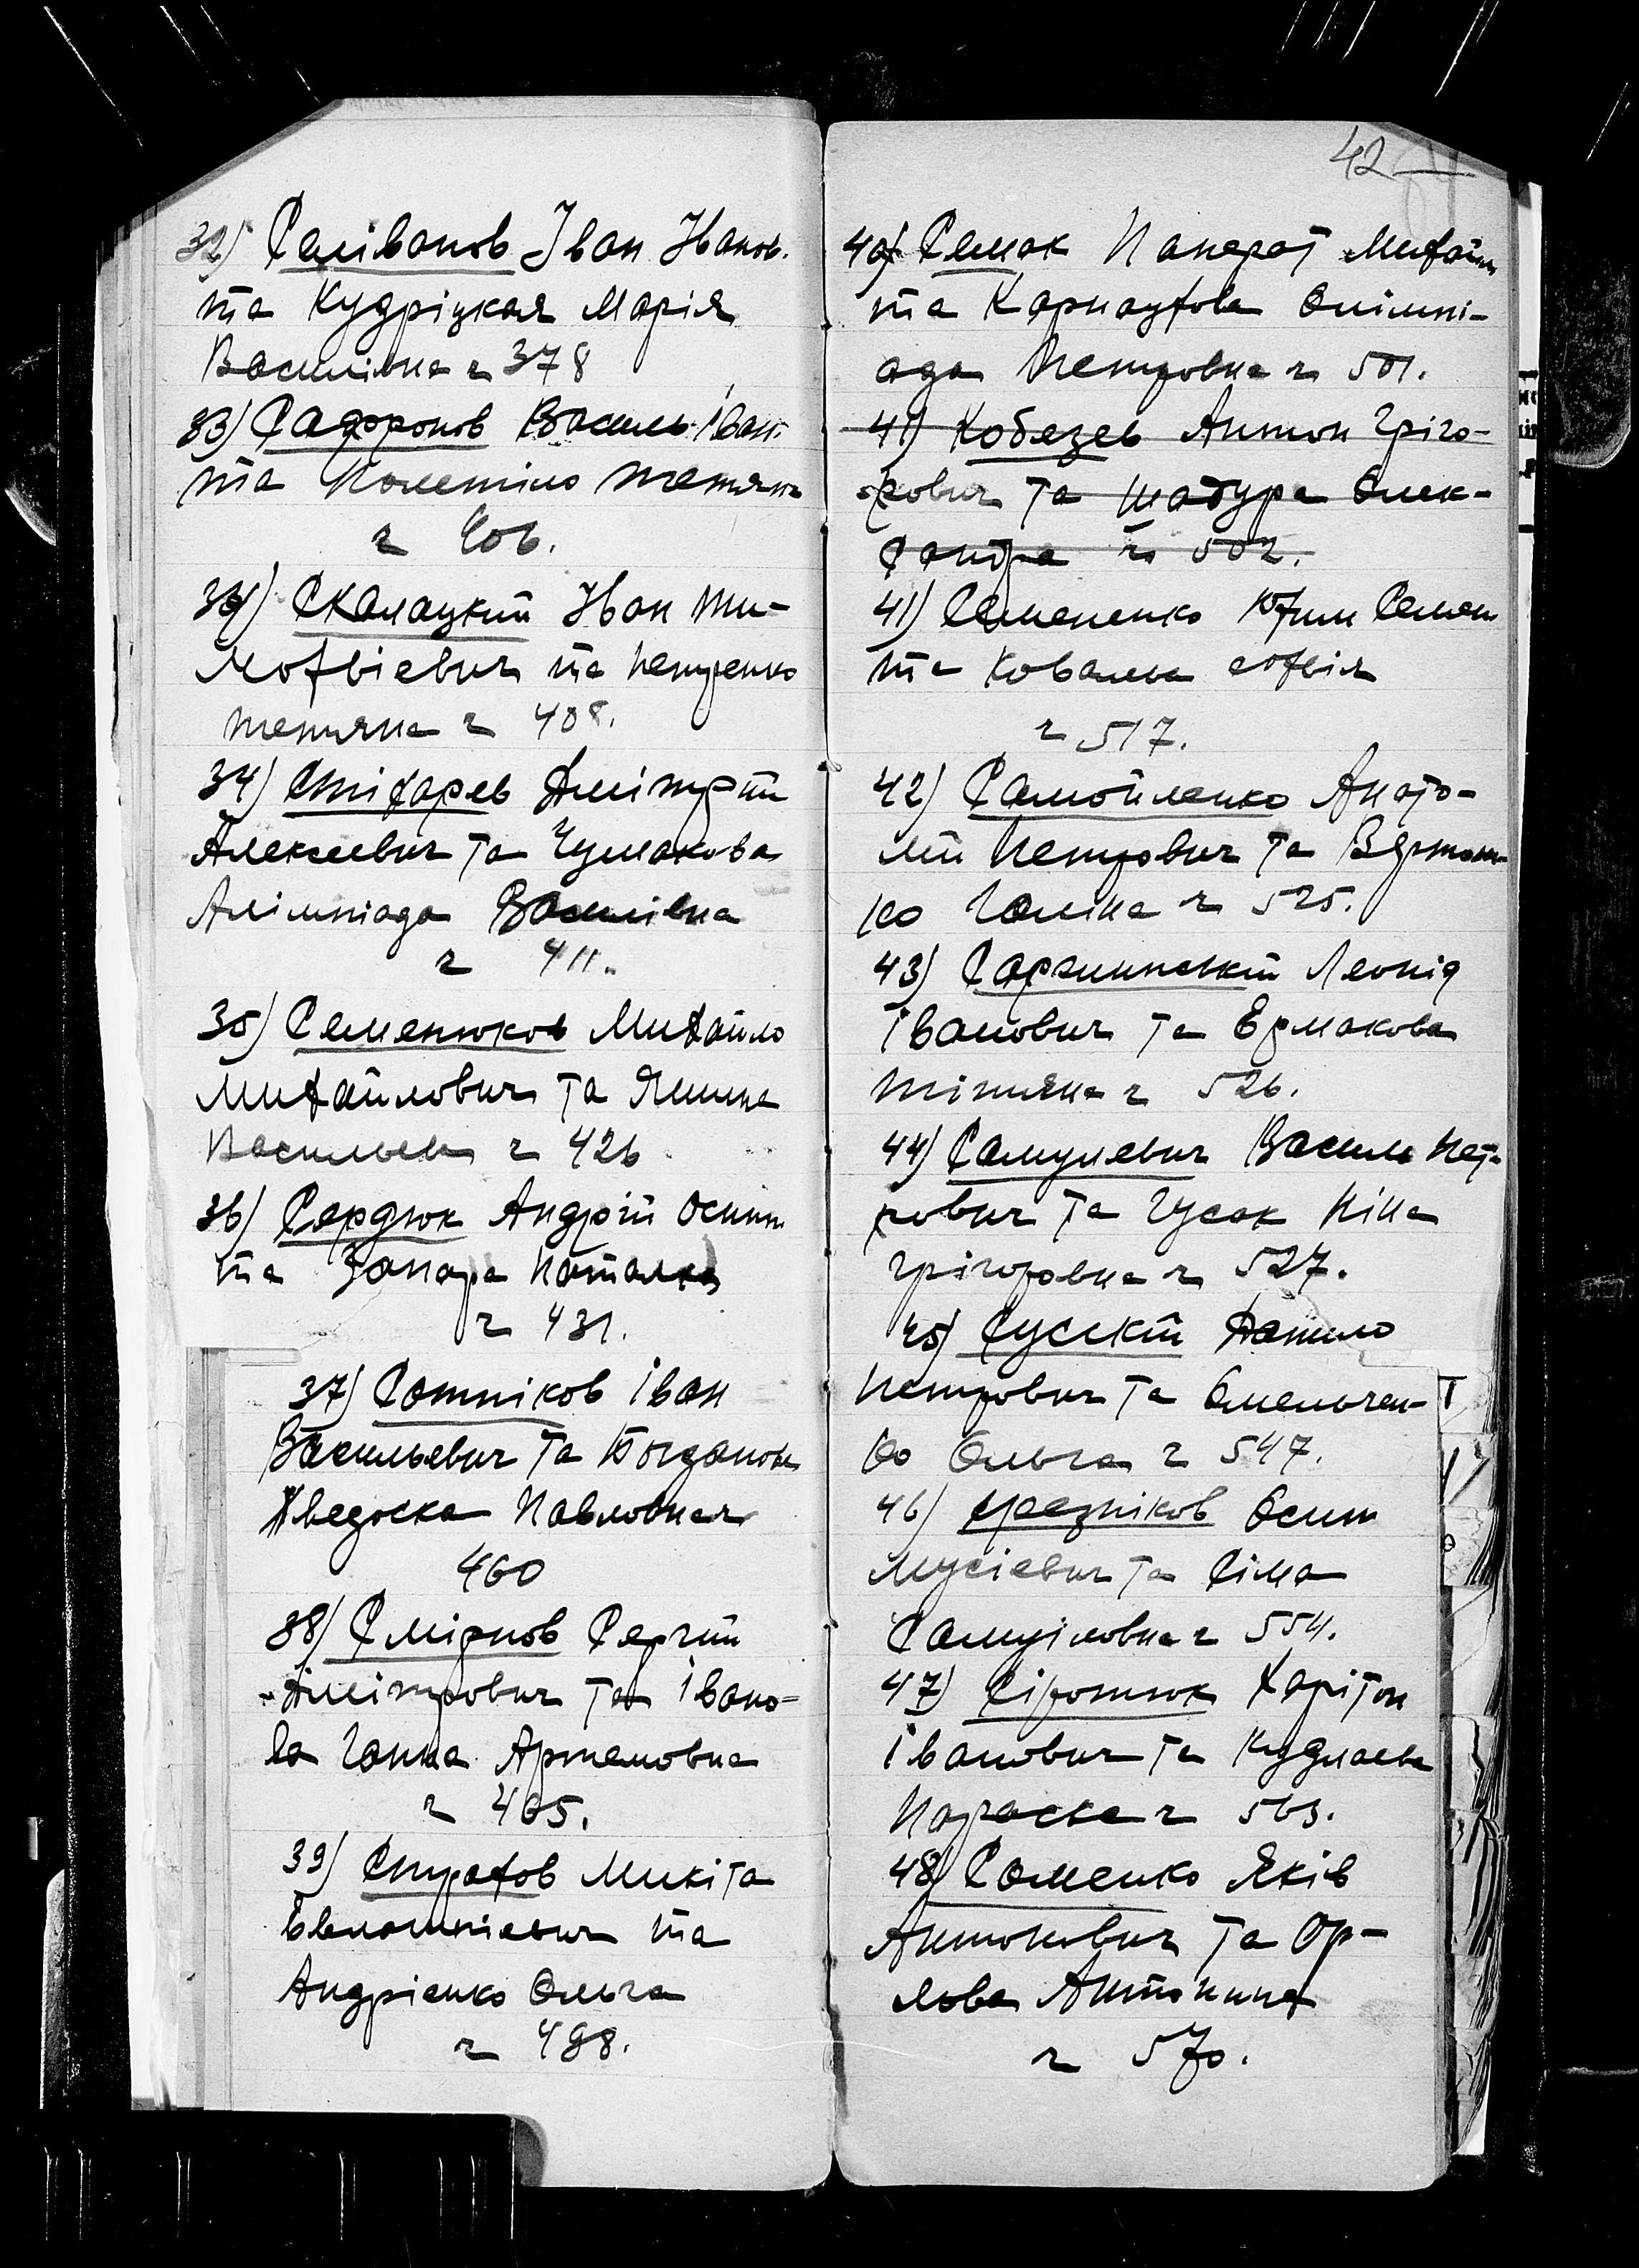 32) Селіванов Іван Іванов.
та Кудріцкая Марія
Василівна ч 378
33) Сафронов Василь Іван.
та Полетіло Тетяна
ч 406.
34) Скалацкий Іван Ти-
мофвіевич та Петренко
Тетяна ч 408.
34) Стіхарев Дмітрій
Алексеевич та Чумакова
Алімпіада Василівна
ч 411.
35) Семенюков Михайло
Михайлович та Яшина
Васильев ч 426
36) Сердюк Андрій Осип
та Запара Наталка
ч 431.
37) Сотніков Іван
Васильевич та Богданова
Хведоска Павловна ч
460
38) Смірнов Сергій
Дмітрович та Івано-
ва Ганна Артемовна
ч 465.
39) Страхов Микіта
Евлампіевич та
Андріенко Ольга
ч 498.
42
40) Семак Панкрат Михайл
та Карнаухова Олімпі-
ада Петровна ч 501.
41) Кобезев Антон Гріго-
рович та Шабура Олек-
сандра ч 502.
41) Семененко Юхим Семен
та Ковалева Софвія
ч 517.
42) Самойленко Анато-
лій Петрович та
ко Галина ч 525.
43) Леонід
Іванович та Ермакова
Тітяна ч 526.
44) Самулевич Василь Пет-
рович та Гусак Ніна
Грігоровна ч 527.
45) Сусскій Данило
Петрович та Омельчен-
ко Ольга ч 547.
46) Срезніков Осип
Мусіевич та Сіма
Самуіловна ч 554.
47) Сіротюк Харітон
Іванович та Кудлаева
Параска ч 563.
48) Соменко Яків
Антонович та Ор-
лова Антонина
ч 570.